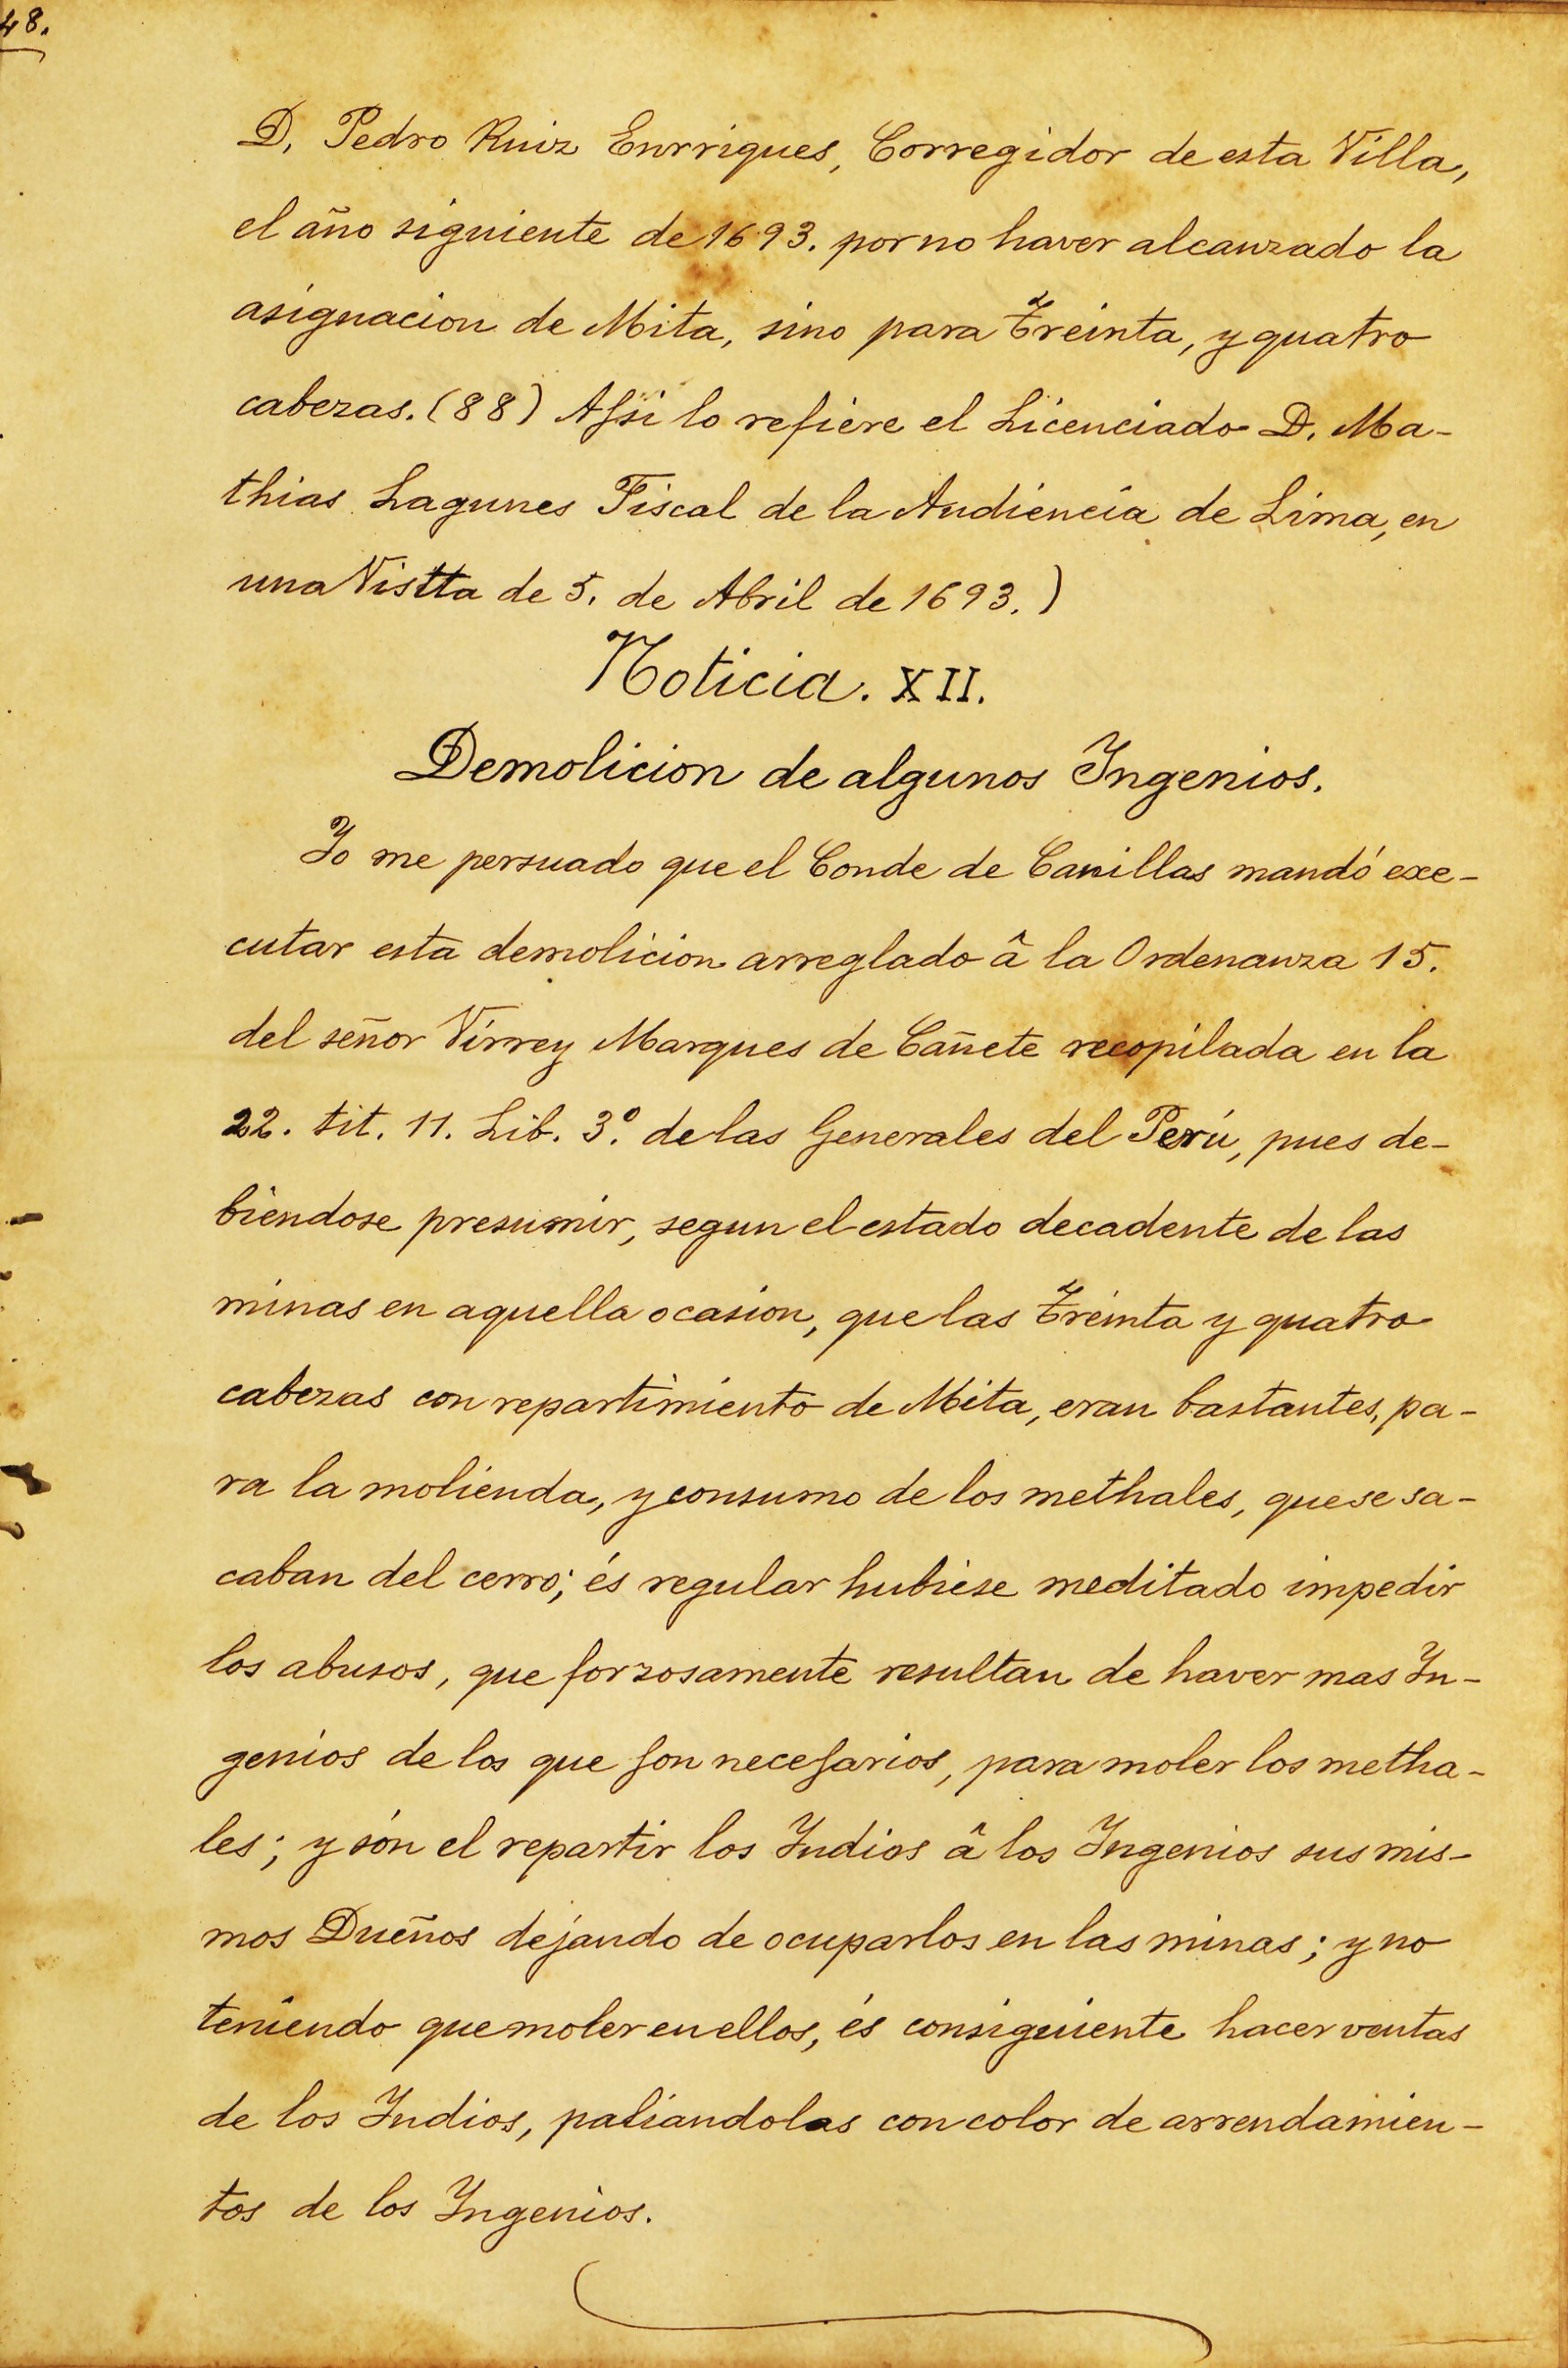 48.
D. Pedro Ruiz Enrriques, Corregidor de esta Villa,
el año siguiente de 1693. por no haver alcanzado la
asignacion de Mita, sino para Treinta, y quatro
cabezas. (88) Assi lo refiere el Licenciado D. Ma-
thias Lagunes Fiscal de la Audiencia de Lima, en
una Vistta de 5. de Abril de 1693.)
Noticia. XII.
Demolicion de algunos Ingenios.
Yo me persuado que el Conde de Canillas mandó exe-
cutar esta demolicion arreglado â la Ordenanza 15.
del señor Virrey Marques de Cañete recopilada en la
22. tit. 11. Lib. 3º. de las Generales del Perú, pues de-
biendose presumir, segun el estado decadente de las
minas en aquella ocasion, que las Treinta y quatro
cabezas con repartimiento de Mita, eran bastantes, pa-
ra la molienda, y consumo de los methales, que se sa-
caban del cerro; és regular hubiese meditado impedir
los abusos, que forzosamente resultan de haver mas In-
genios de los que son necesarios, para moler los metha-
les; y són el repartir los Indios â los Ingenios sus mis-
mos Dueños dejando de ocuparlos en las minas; y no
teniendo que moler en ellos, és consiguiente hacer ventas
de los Indios, paliandolas con color de arrendamien-
tos de los Ingenios.